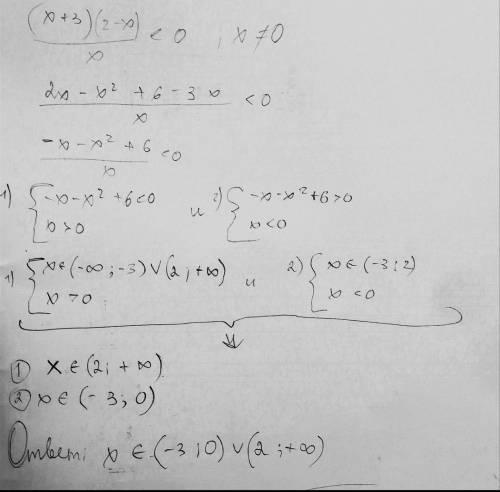 (x+3)(2-x)/x < 0 , x ≠ 0
2x - x² + 6 - 3x/x < 0
-x - x² + 6/x < 0
1) { -x - x² + 6 < 0 и 2) { -x - x² + 6 > 0
x > 0 x < 0
1) { x ∈ (-∞; -3) ∨ (2; +∞) и 2) { x ∈ (-3; 2)
x > 0 x < 0
⇓
① x ∈ (2; +∞)
② x ∈ (-3; 0)
Ответ: x ∈ (-3; 0) ∨ (2; +∞)